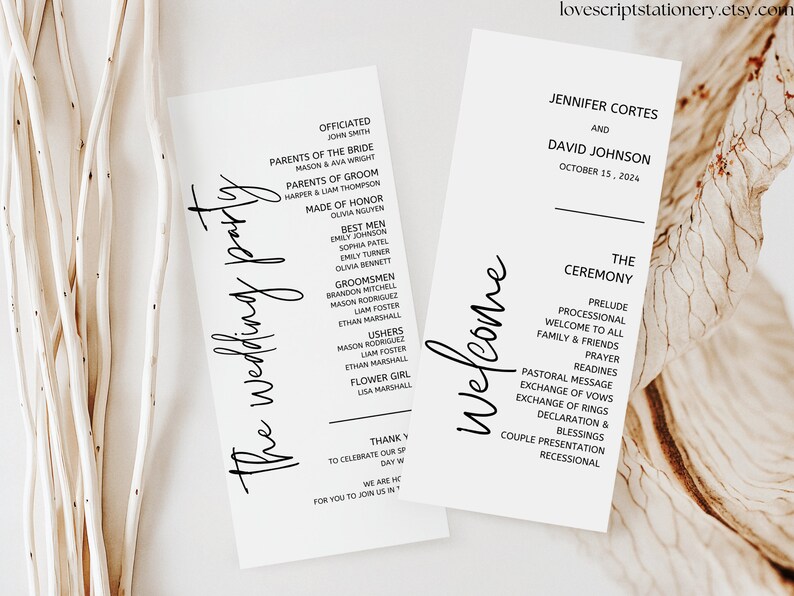 lovescriptstationery.etsy.com
the wedding party
OFFICIATED
JOHN SMITH
PARENTS OF THE BRIDE
MASON & AVA WRIGHT
PARENTS OF GROOM
HARPER & LIAM THOMPSON
MADE OF HONOR
OLIVIA NGUYEN
BEST MEN
EMILY JOHNSON
SOPHIA PATEL
EMILY TURNER
OLIVIA BENNETT
GROOMSMEN
BRANDON MITCHELL
MASON RODRIGUEZ
LIAM FOSTER
ETHAN MARSHALL
USHERS
MASON RODRIGUEZ
LIAM FOSTER
ETHAN MARSHALL
FLOWER GIRL
LISA MARSHALL
THANK
TO CELEBRATE OUR
DAY
WE ARE
FOR YOU TO JOIN US IN
welcome
JENNIFER CORTES
AND
DAVID JOHNSON
OCTOBER 15 , 2024
THE
CEREMONY
PRELUDE
PROCESSIONAL
WELCOME TO ALL
FAMILY & FRIENDS
PRAYER
READINES
PASTORAL MESSAGE
EXCHANGE OF VOWS
EXCHANGE OF RINGS
DECLARATION &
BLESSINGS
COUPLE PRESENTATION
RECESSIONAL